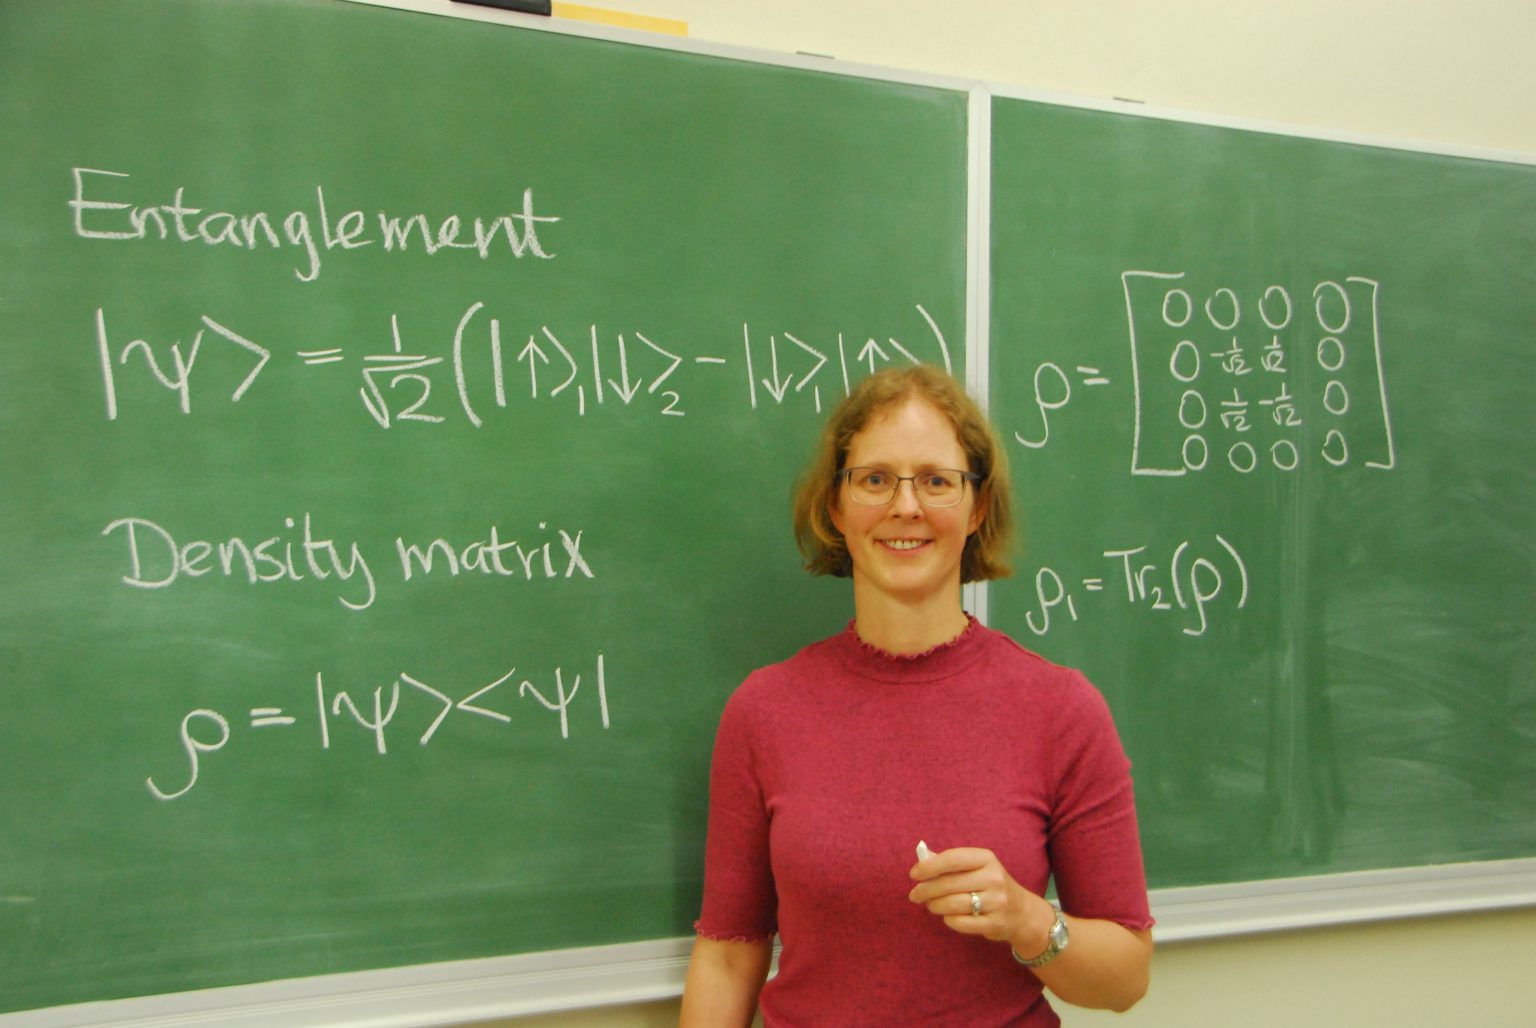 Entanglement
|ψ> = 1/√2 (|↑>₁|↓>₂ − |↓>₁|↑>)
Density matrix
ρ = |ψ><ψ|
ρ = [0 0 0 0
0 -1/√2 1/√2 0
0 1/√2 -1/√2 0
0 0 0 0]
ρ₁ = Tr₂(ρ)